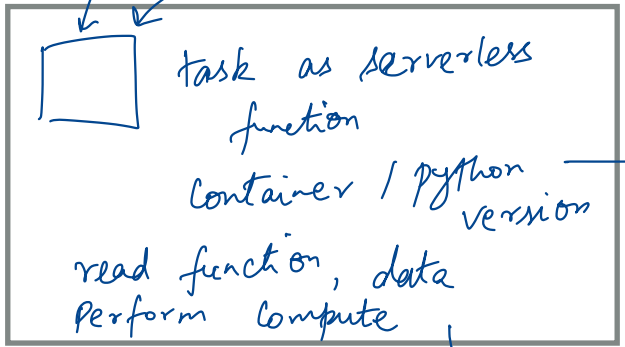 task as serverless
function
container / python
version
read function, data
Perform compute